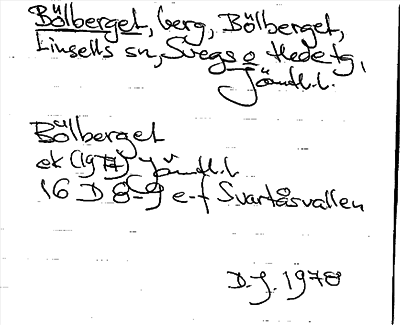 Bölberget, berg, Bölberget,
Linsells sn, Svegs o Hede tg,
Jämtl.l.
Bölberget
ek (1977) Jämtl.l
16 D 8-9 e-f Svartåsvallen
D.J. 1978